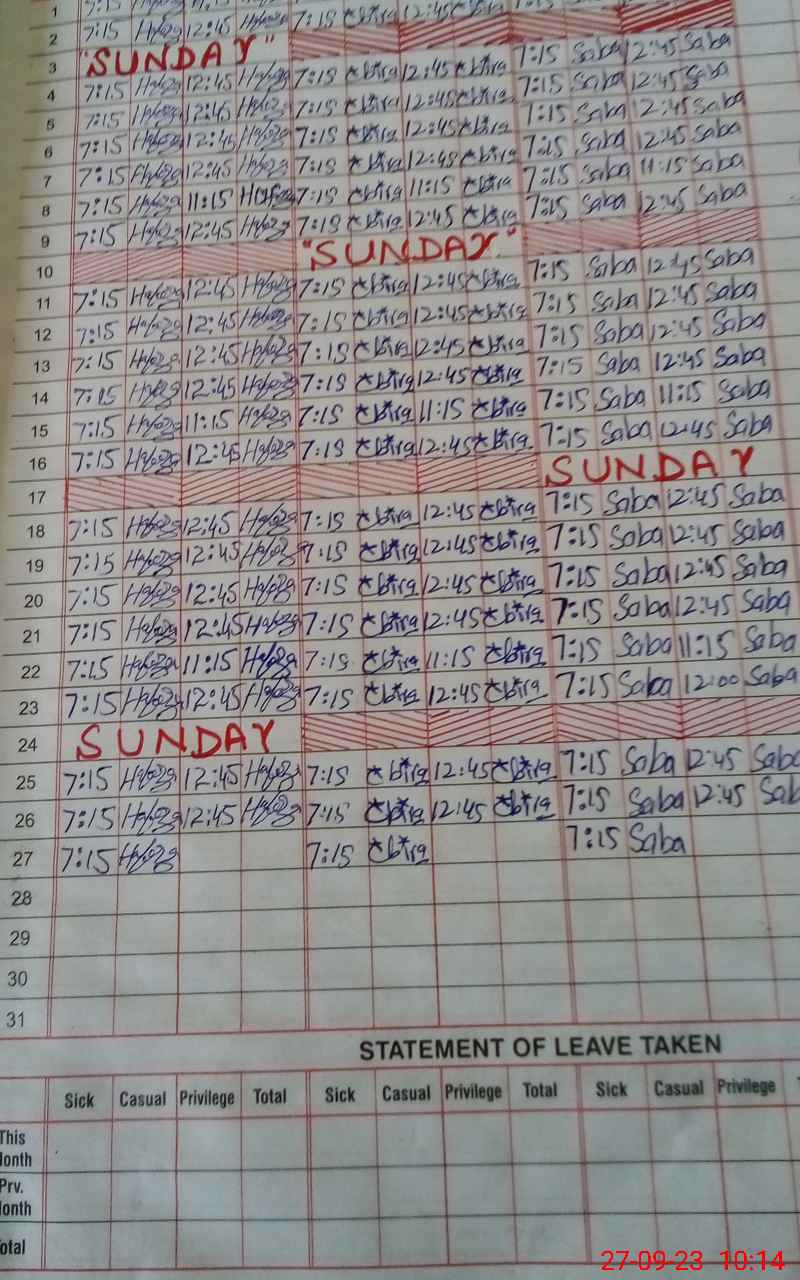 1 7:15 12:45 7:15 Abira 12:45 Abira 7:15
2 7:15 Hafeza 12:45 Hafeza
3 "SUNDAY" 7:15 Saba 12:45 Saba
4 7:15 Hafeza 12:45 Hafeza 7:15 Abira 12:45 Abira 7:15 Saba 12:45 Saba
5 7:15 Hafeza 12:45 Hafeza 7:15 Abira 12:45 Abira 7:15 Saba 12:45 Saba
6 7:15 Hafeza 12:45 Hafeza 7:15 Abira 12:45 Abira 7:15 Saba 12:45 Saba
7 7:15 Hafeza 12:45 Hafeza 7:15 Abira 12:45 Abira 7:15 Saba 11:15 Saba
8 7:15 Hafeza 11:15 Hafeza 7:15 Abira 11:15 Abira 7:15 Saba 12:45 Saba
9 7:15 Hafeza 12:45 Hafeza 7:15 Abira 12:45 Abira
10 "SUNDAY" 7:15 Saba 12:45 Saba
11 7:15 Hafeza 12:45 Hafeza 7:15 Abira 12:45 Abira 7:15 Saba 12:45 Saba
12 7:15 Hafeza 12:45 Hafeza 7:15 Abira 12:45 Abira 7:15 Saba 12:45 Saba
13 7:15 Hafeza 12:45 Hafeza 7:15 Abira 12:45 Abira 7:15 Saba 12:45 Saba
14 7:15 Hafeza 12:45 Hafeza 7:15 Abira 12:45 Abira 7:15 Saba 11:15 Saba
15 7:15 Hafeza 11:15 Hafeza 7:15 Abira 11:15 Abira 7:15 Saba 12:45 Saba
16 7:15 Hafeza 12:45 Hafeza 7:15 Abira 12:45 Abira SUNDAY
17 7:15 Saba 12:45 Saba
18 7:15 Hafeza 12:45 Hafeza 7:15 Abira 12:45 Abira 7:15 Saba 12:45 Saba
19 7:15 Hafeza 12:45 Hafeza 7:15 Abira 12:45 Abira 7:15 Saba 12:45 Saba
20 7:15 Hafeza 12:45 Hafeza 7:15 Abira 12:45 Abira 7:15 Saba 12:45 Saba
21 7:15 Hafeza 12:45 Hafeza 7:15 Abira 12:45 Abira 7:15 Saba 11:15 Saba
22 7:15 Hafeza 11:15 Hafeza 7:15 Abira 11:15 Abira 7:15 Saba 12:00 Saba
23 7:15 Hafeza 12:45 Hafeza 7:15 Abira 12:45 Abira
24 SUNDAY
25 7:15 Hafeza 12:45 Hafeza 7:15 Abira 12:45 Abira 7:15 Saba 12:45 Saba
26 7:15 Hafeza 12:45 Hafeza 7:15 Abira 12:45 Abira 7:15 Saba 12:45 Sab
27 7:15 Hafeza 7:15 Abira 7:15 Saba
28
29
30
31
STATEMENT OF LEAVE TAKEN
Sick Casual Privilege Total Sick Casual Privilege Total Sick Casual Privilege
This
onth
Prv.
onth
otal
27-09-23 10:14